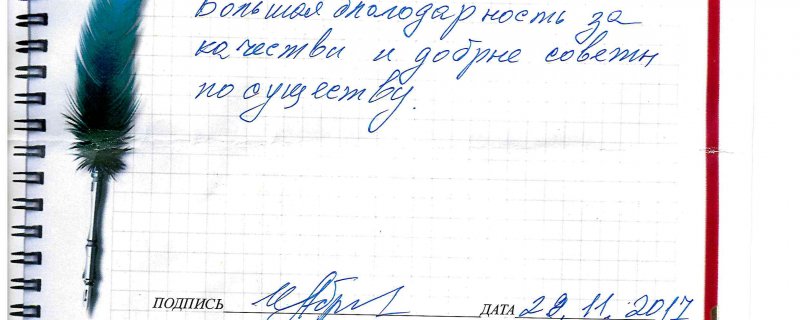 Большая благодарность за
качестви и добрые советы
по существу.
ПОДПИСЬ
ДАТА 29.11.2017